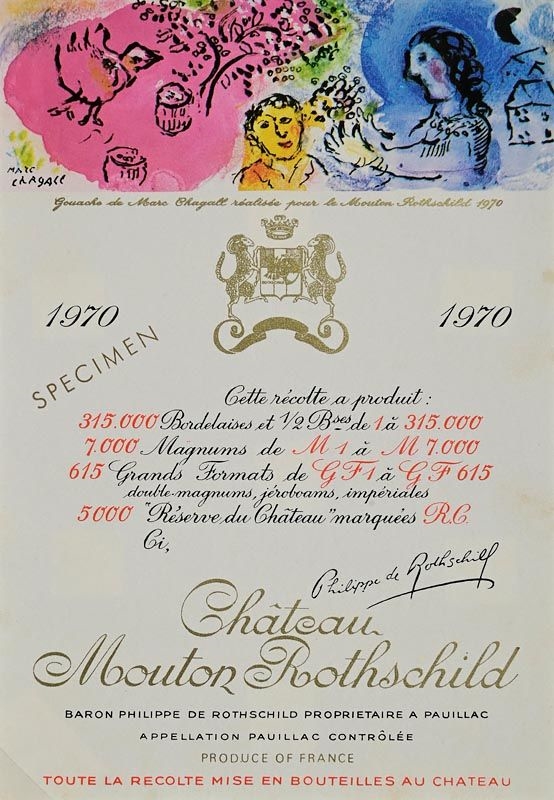 MARC
CHAGALL
Gouache de Marc Chagall réalisée pour le Mouton Rothschild 1970
1970
1970
SPECIMEN
Cette récolte a produit :
315.000 Bordelaises et 1/2 Bses de 1 à 315.000
7.000 Magnums de M 1 à M 7.000
615 Grands Formats de GF1 à GF 615
double-magnums, jéroboams, impériales
5000 "Réserve du Château" marquées R.C.
Ci,
Philippe de Rothschild
Château
Mouton Rothschild
BARON PHILIPPE DE ROTHSCHILD PROPRIETAIRE A PAUILLAC
APPELLATION PAUILLAC CONTRÔLÉE
PRODUCE OF FRANCE
TOUTE LA RECOLTE MISE EN BOUTEILLES AU CHATEAU